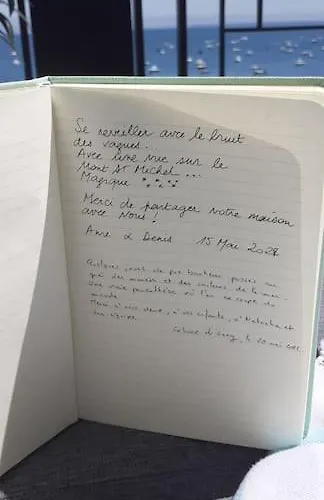 Se reveiller avec le bruit
des vagues...
Avec une vue sur le
Mont St Michel...
Magique
Merci de partager votre maison
avec Nous !
Anne & Denis 15 Mai 202
Quelques jours de pur bonheur posés au
gré des marées et des couleurs de la mer.
Une vraie parenthèse où l'on se coupe du
monde.
Merci à vous deux, à vos enfants, à Natacha et
le 20 mai